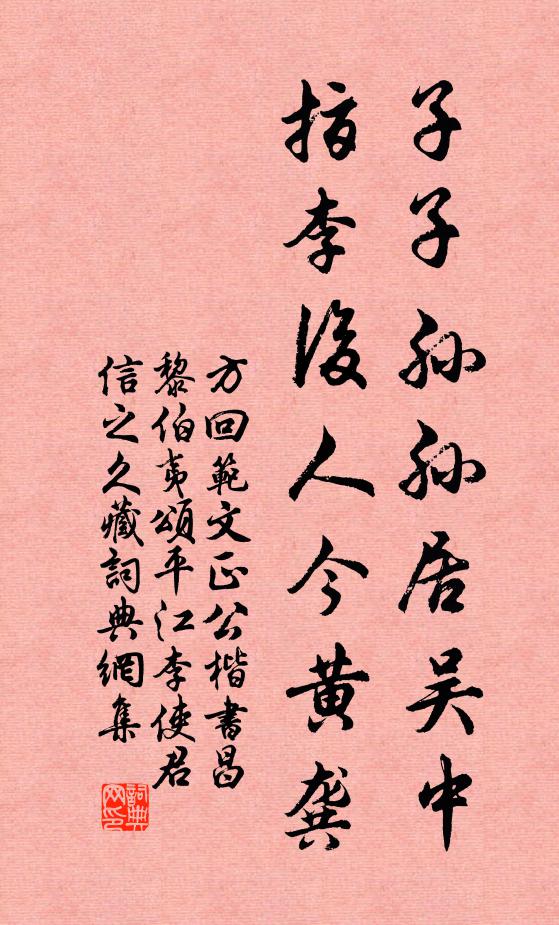 子子孙孙居吴中
指李後人今黄龚
方回範文正公楷書昌
黎伯夷頌平江李使君
信之久藏詞典網集
詞典网印